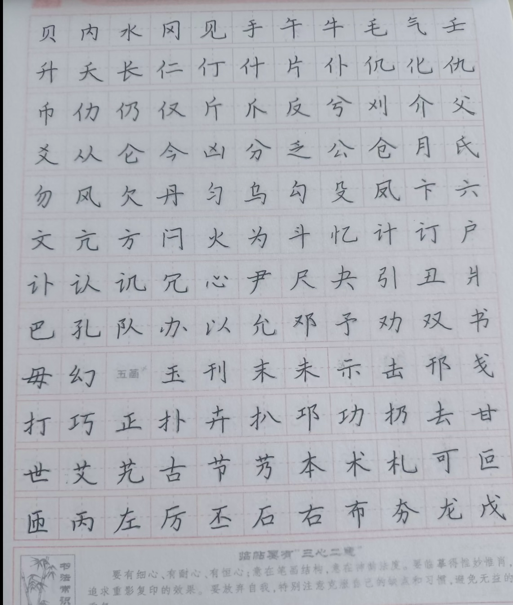 贝内水冈见手午牛毛气壬
升夭长仁仃什片仆仉化仇
币仂仍仅斤爪反兮刈介父
爻从仑今凶分乏公仓月氏
勿风欠丹匀乌勾殳凤卞六
文亢方闩火为斗忆计订户
讣认讥冗心尹尺夬引丑爿
巴孔队办以允邓予劝双书
毋幻 五画 玉刊末未示击邗戋
打巧正扑卉扒邛功扔去甘
世艾艽古节艿本术札可叵
匝丙左厉丕石右布夯龙戊
描贴要有“三心二意”
要有细心,有耐心,有恒心;意在笔画结构,意在
追求重影复印的效果。要放弃自我,特别注意克服自己的缺点和习惯,避免无益的